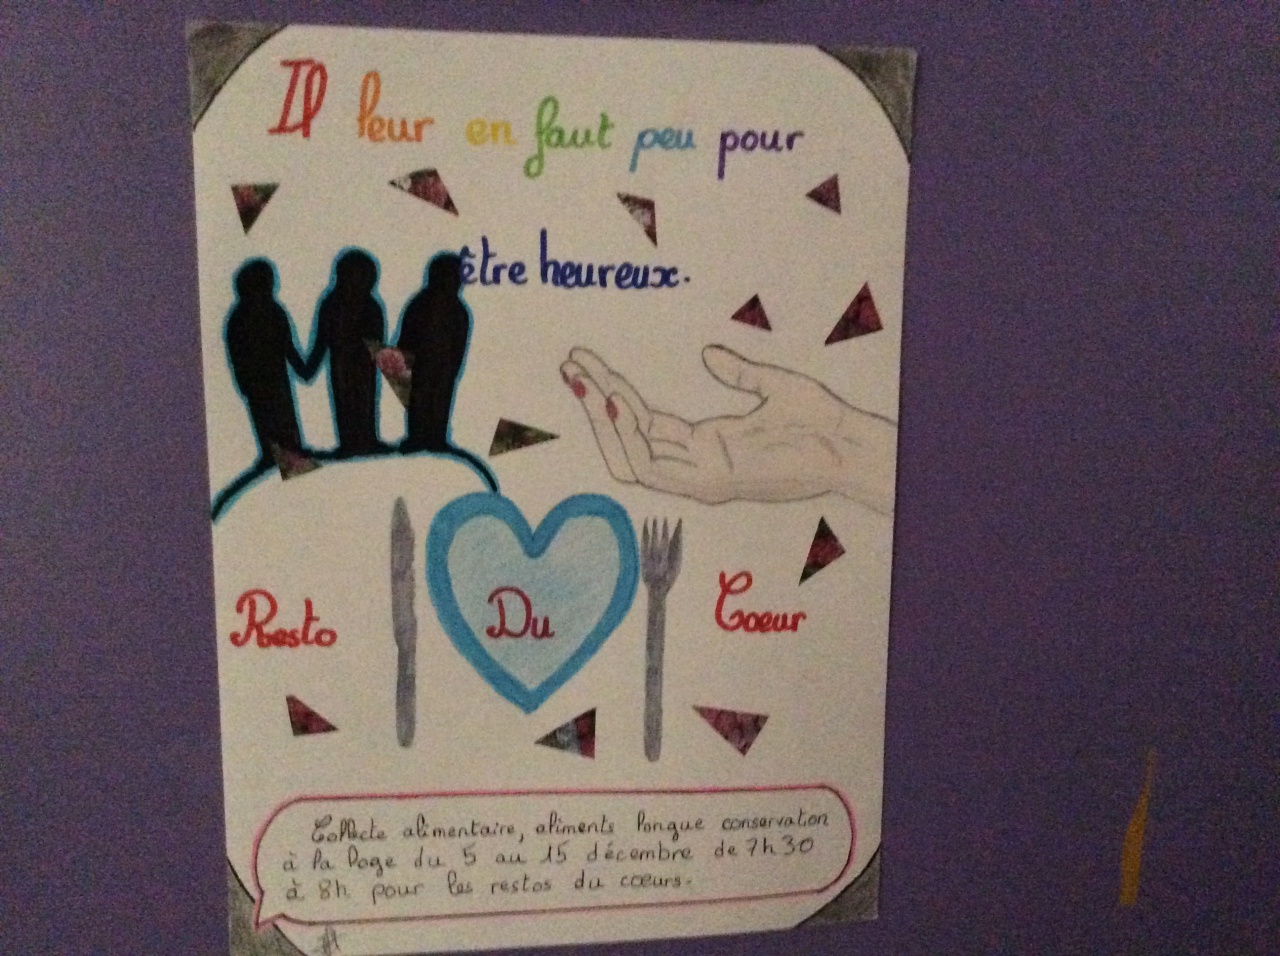 Il leur en faut peu pour
être heureux.
Resto Du Coeur
Collecte alimentaire, aliments longue conservation
à la loge du 5 au 15 décembre de 7h30
à 8h pour les restos du cœurs.